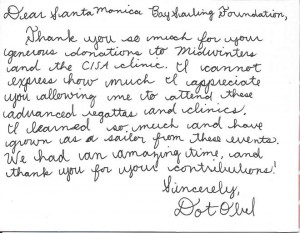 Dear Santa Monica Bay Sailing Foundation,
Thank you so much for your
generous donations to Midwinters
and the CISA clinic. I cannot
express how much I appreciate
you allowing me to attend these
advanced regattas and clinics.
I learned so much and have
grown as a sailor from these events.
We had an amazing time, and
thank you for your contributions!
Sincerely,
Dot Obel